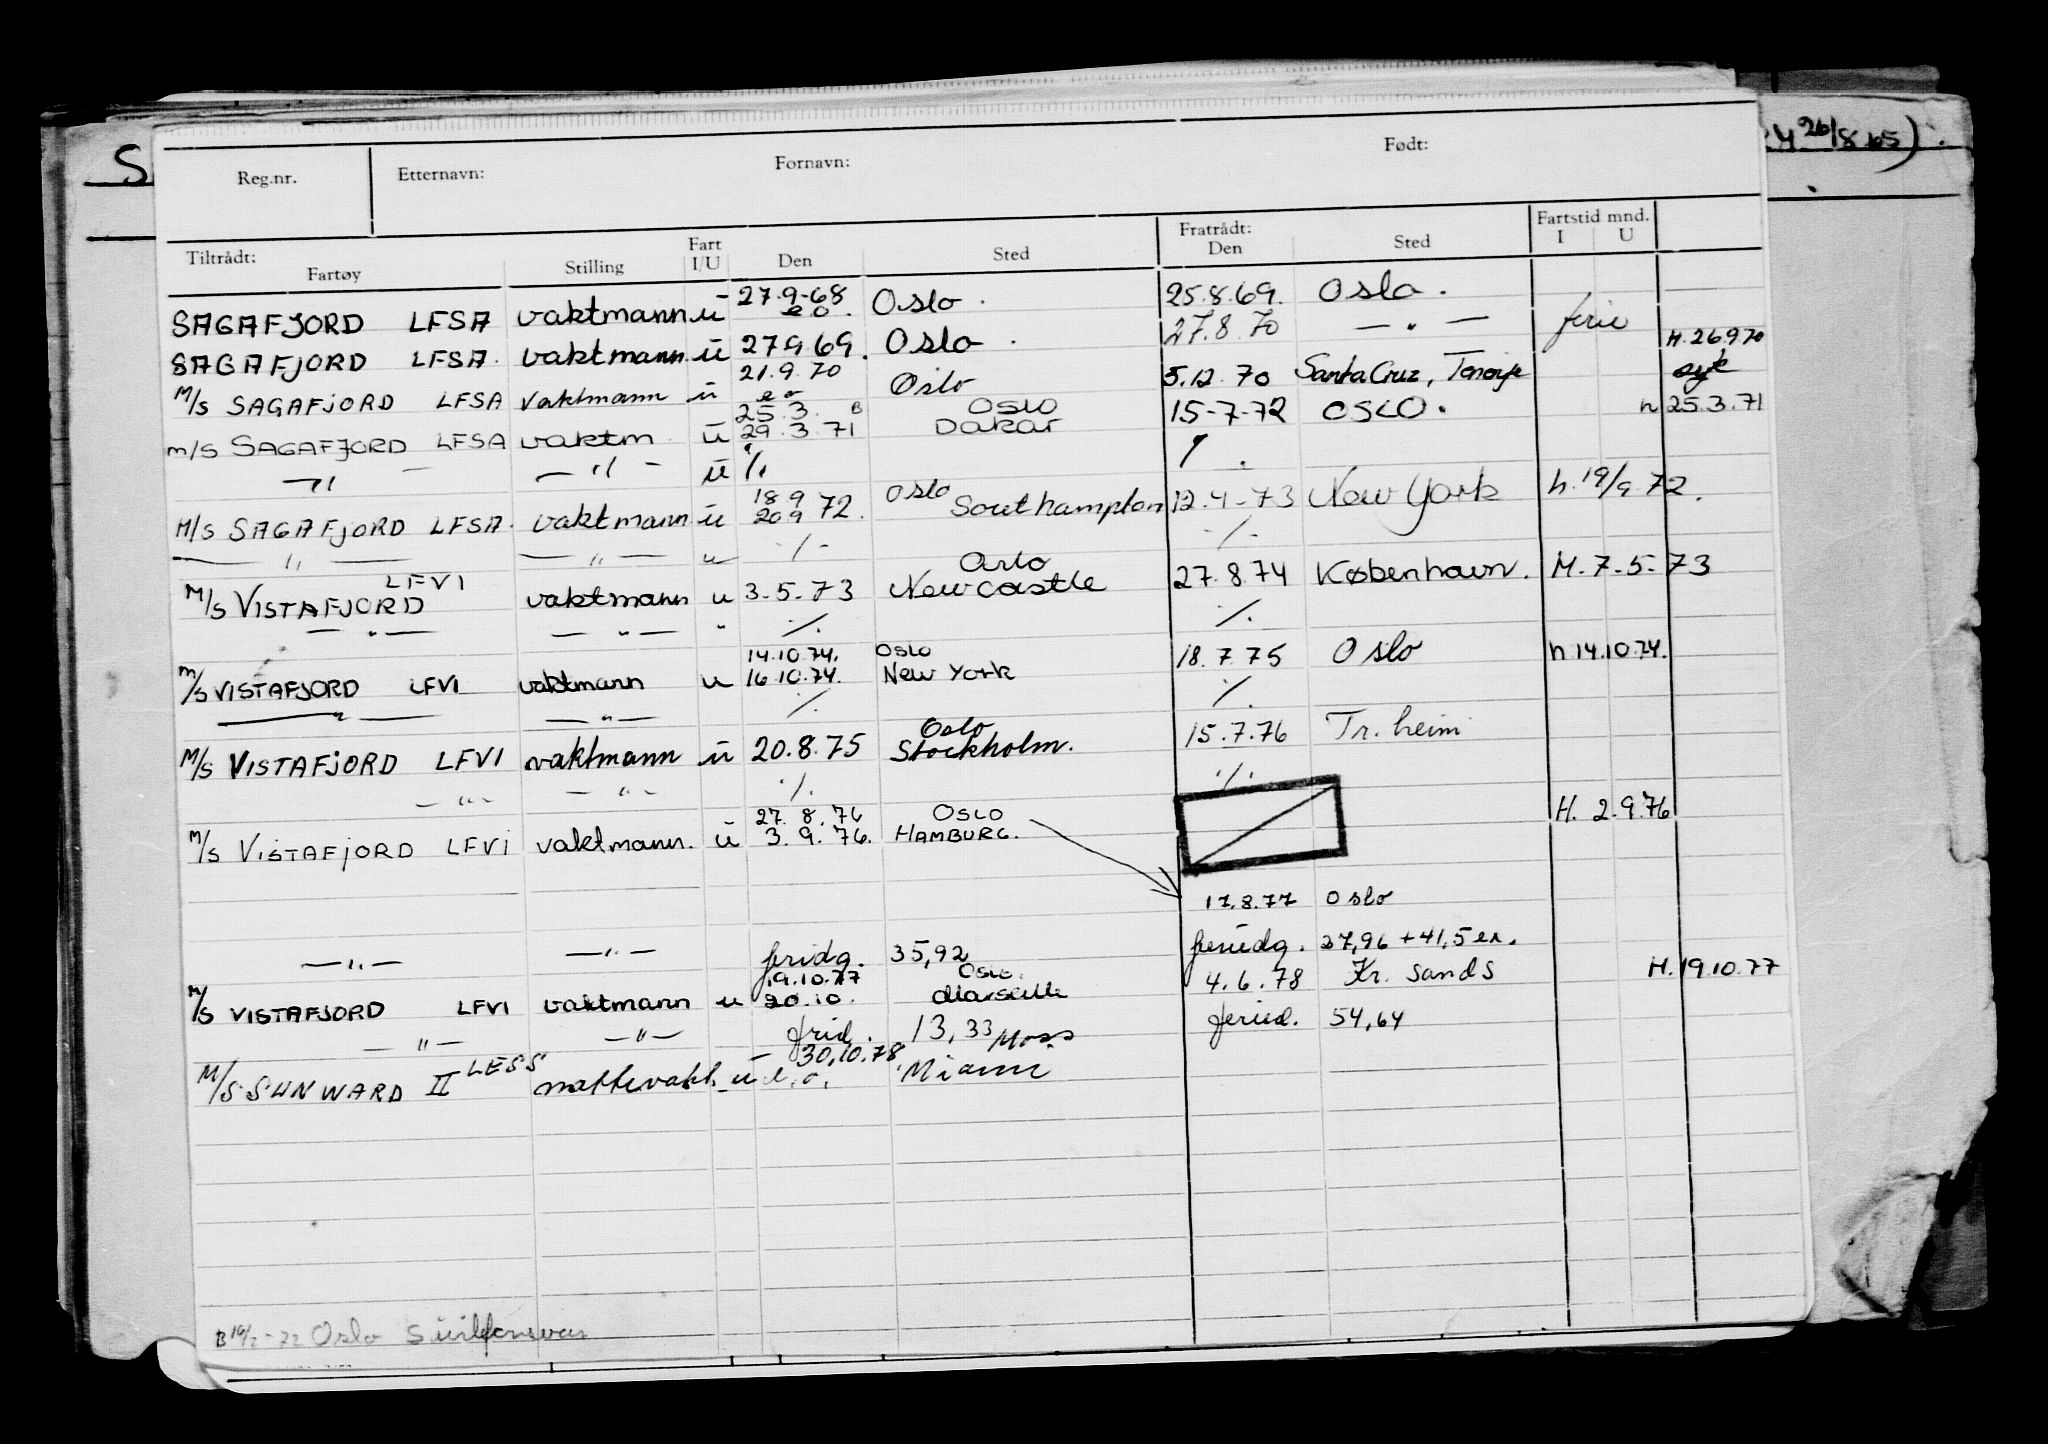 S 26/8 65).
Reg.nr. Etternavn: Fornavn: Født:
Tiltrådt: Fart Fratrådt: Fartstid mnd.
Fartøy Stilling I/U Den Sted Den Sted I U
27.9-68
SAGAFJORD LFSA vaktmann u eo. Oslo. 25.8.69. Oslo.
SAGAFJORD LFSA. vaktmann ü 27.9.69. Oslo. 27.8.70 — " — ferie H. 26.9.70
21.9.70
M/S SAGAFJORD LFSA vaktmann ü eo Oslo 5.12.70 Santa Cruz, Tenerife syk
25.3. B Oslo
m/s SAGAFJORD LFSA vaktm ü 29.3.71 Dakar 15-7-72 OSLO. h 25.3.71
— " — — " — ü ·/.
18 9 Oslo
M/S SAGAFJORD LFSA. vaktmann ü 20 9 72. Southampton 12.4-73 New York h. 19/9 72.
— " — — " — u ·/. ·/.
LFVI Oslo
M/S VISTAFJORD vaktmann u 3-5-73 Newcastle 27.8.74 København. M. 7-5-73
— " — — " — " ·/. ·/.
14.10.74. Oslo
m/s VISTAFJORD LFVI vaktmann u 16.10.74. New York 18.7.75 Oslo h 14.10.74.
— " — — " — ·/. ·/.
Oslo
M/S VISTAFJORD LFVI vaktmann ü 20.8.75 Stockholm. 15.7.76 Tr.heim
— " — — " — ·/. ·/.
27.8.76 Oslo
M/S VISTAFJORD LFVI vaktmann. ü 3.9.76. HAMBURG. H. 2.9.76
17.8.77 Oslo
— " — — " — fridg. 35,92 feriedg. 27,96 + 41,5 er.
19.10.77 Oslo.
M/S VISTAFJORD LFVI vaktmann u 20.10. Marseille 4.6.78 Kr. sands H. 19.10.77
— " — — " — frid. 13,33 feried. 54,64
LESS 30.10.78 Moss
M/S SUNWARD II nattevakt ü e.o. Miami
B 16/2-72 Oslo Sivilforsvar